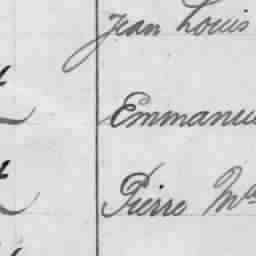 Jean Louis
Emmanue
Pierre M